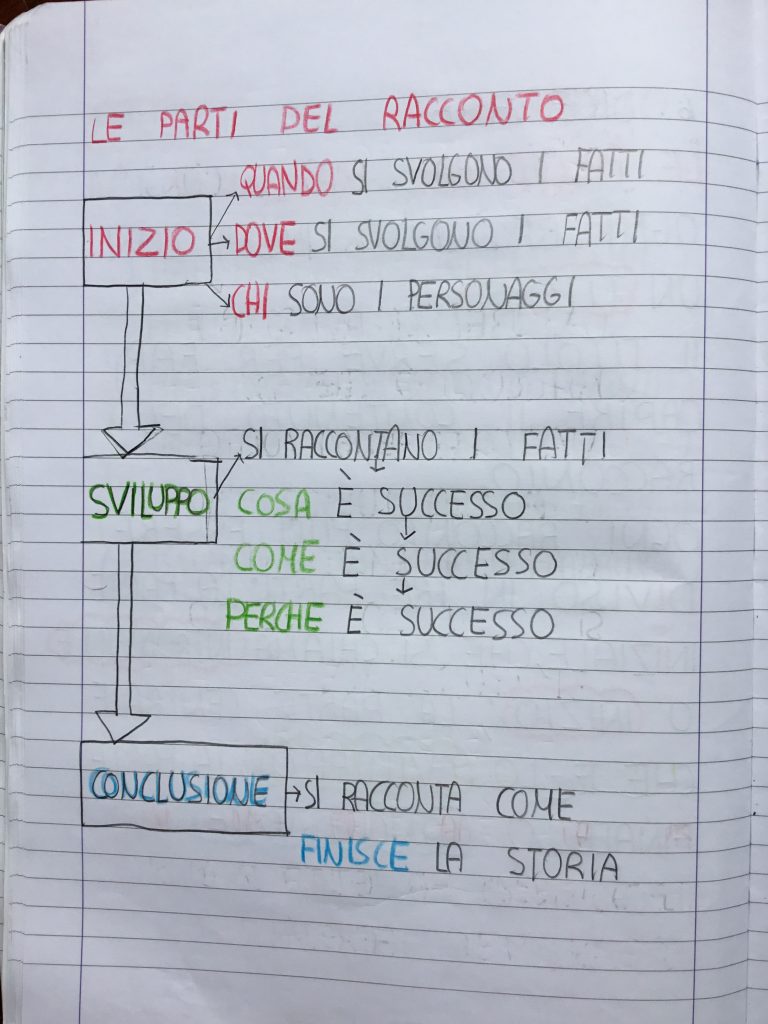 LE PARTI DEL RACCONTO
QUANDO SI SVOLGONO I FATTI
INIZIO DOVE SI SVOLGONO I FATTI
CHI SONO I PERSONAGGI
SI RACCONTANO I FATTI
SVILUPPO COSA È SUCCESSO
COME È SUCCESSO
PERCHE È SUCCESSO
CONCLUSIONE SI RACCONTA COME
FINISCE LA STORIA